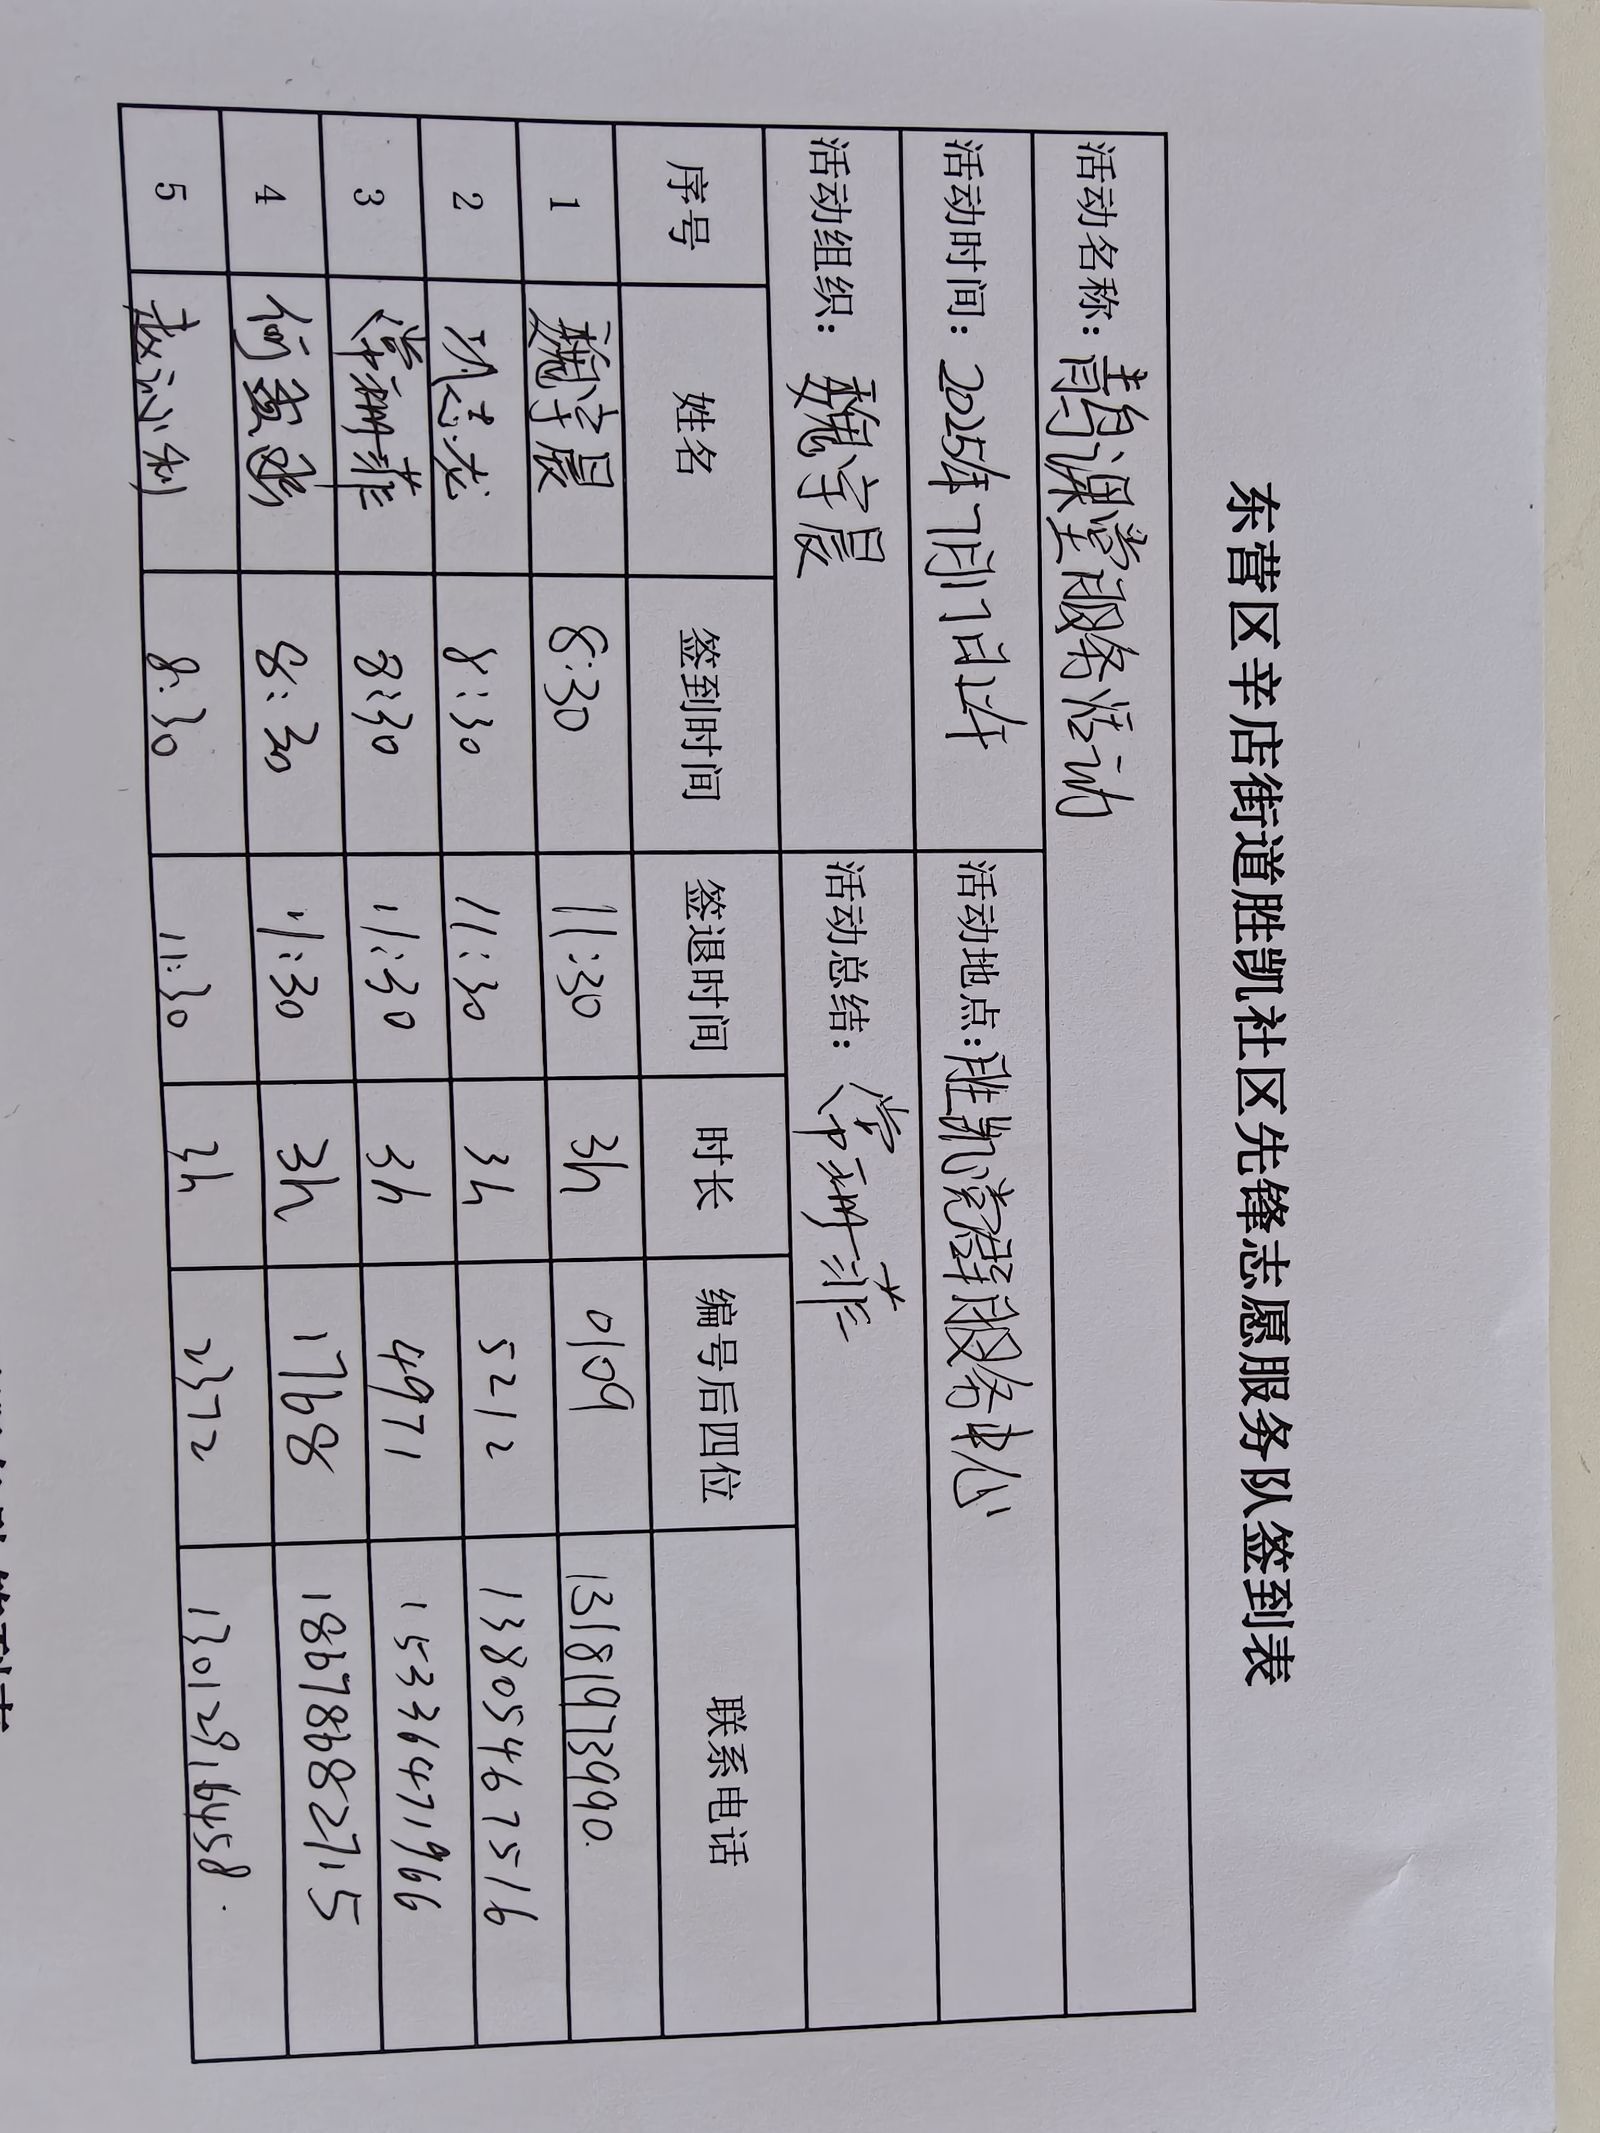 东营区辛店街道胜凯社区先锋志愿服务队签到表
活动名称：青鸟课堂服务活动
活动时间：2025年7月17日上午 活动地点：胜凯党群服务中心
活动组织：魏宇晨 活动总结：常珊菲
序号 姓名 签到时间 签退时间 时长 编号后四位 联系电话
1 魏宇晨 8:30 11:30 3h 0109 13181973990
2 志龙 8:30 11:30 3h 5212 13805467516
3 常珊菲 8:30 11:30 3h 4971 15336471966
4 何 8:30 11:30 3h 1768 18678682715
5 赵沁利 8:30 11:30 3h 2372 13012916458